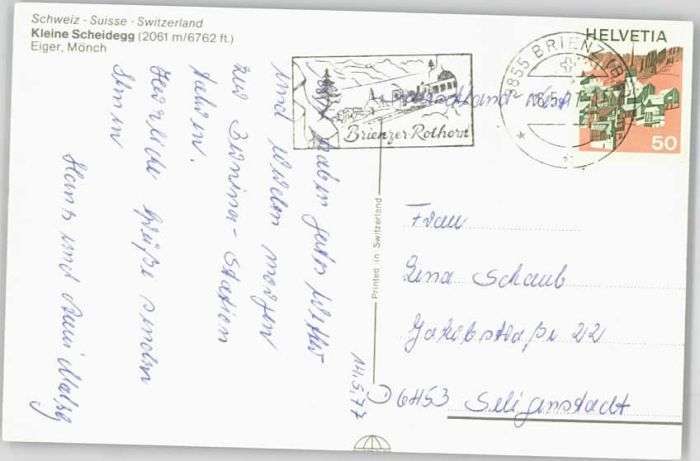 Schweiz - Suisse - Switzerland
Kleine Scheidegg (2061 m/6762 ft.)
Eiger, Mönch
Brienzer Rothorn
3855 BRIENZ
HELVETIA
50
Printed in Switzerland
14.5.77
haben gutes Wetter
und werden morgen
zur Bernina-Station
fahren.
Herzliche Grüße senden
Ihnen
Hans und
Frau
Lina Schaub
Jakobstraße 22
6453 Seligenstadt